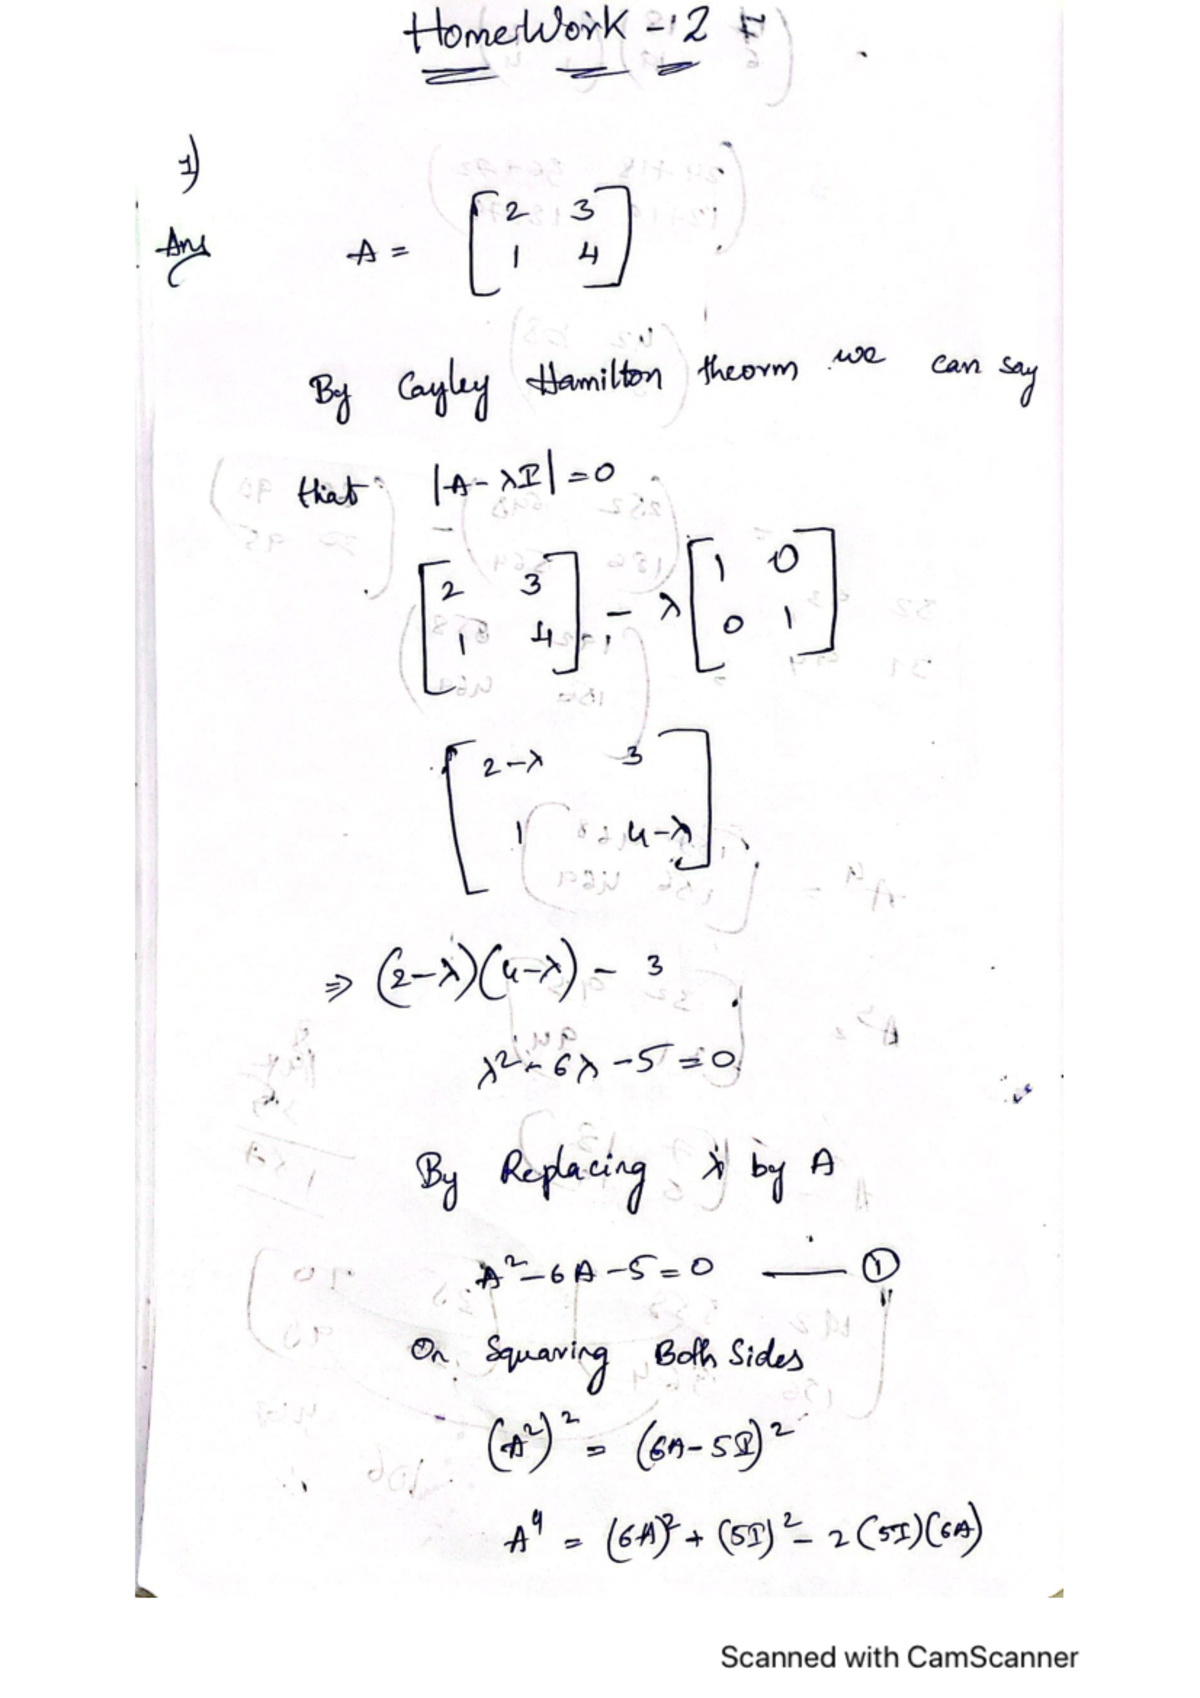 HomeWork - 2
1)
Ans A = [2 3
1 4]
By Cayley Hamilton theorm we can say
that |A - λI| = 0
[2 3
1 4] - λ [1 0
0 1]
[2-λ 3
1 4-λ]
⇒ (2-λ)(4-λ) - 3
λ² - 6λ - 5 = 0
By Replacing λ by A
A² - 6A - 5 = 0 —— ①
On Squaring Both Sides
(A²)² = (6A - 5I)²
A⁴ = (6A)² + (5I)² - 2(5I)(6A)
Scanned with CamScanner